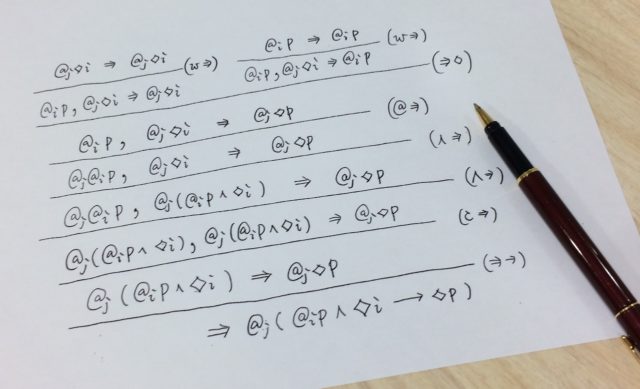 @j◇i ⇒ @j◇i (w⇒) @iP ⇒ @iP (w⇒)
@iP, @j◇i ⇒ @j◇i @iP, @j◇i ⇒ @iP (⇒◇)
@iP, @j◇i ⇒ @j◇P (@⇒)
@j@iP, @j◇i ⇒ @j◇P (∧⇒)
@j@iP, @j(@iP∧◇i) ⇒ @j◇P (∧⇒)
@j(@iP∧◇i), @j(@iP∧◇i) ⇒ @j◇P (c⇒)
@j(@iP∧◇i) ⇒ @j◇P (⇒→)
⇒ @j(@iP∧◇i → ◇P)